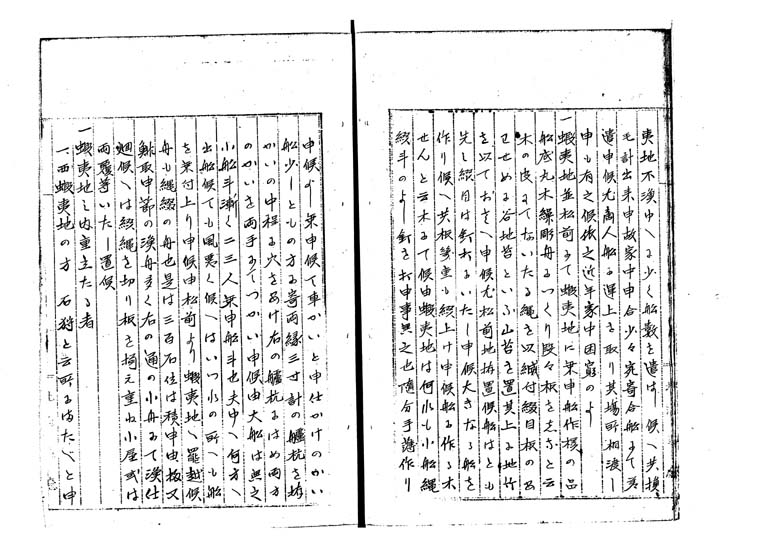 夷地不漢中へも少く船数を遣し候へ共損
毛計出来申故家中申合少々宛寄合船にて
遣申候尤商人船も運上を取り其場所相渡し
申も有之候依之近年家中困窮のよし
一蝦夷地並松前にて蝦夷地に乗申船作様の品
船底丸木繰彫舟につくり段々板を
木の皮にてないたる縄を以縅付綴目板の
せめる谷地苔といふ山苔を置其上に地竹
を以ておさへ申候尤松前地拵置候船はとも
先し綴目は釘にいたし申候大きなる船を
作り候へ共板幾重も綴上け申候船に作る木
せんと云木にて候由蝦夷地は何れも小船縄
綴斗のよし釘さし申事無之也随分手薄作り
申候よし乗申候て車かいと申仕かけのかい
船少しともの方に寄両縁三寸計の艫杭を拵
かいの中程に穴をあけ右の艫杭にはめ両方
のかいを両手にてつかい申候由大船は無之
小船斗漸く二三人乗申船斗也夫中へ何方へ
出船候ても風悪く候へはいつれの所へも船
を乗付上り申候由松前より蝦夷地へ罷越候
舟も縄綴の舟也是は三百石位は積申由扨又
鯡取申節の漁舟多く右の通の小舟にて漁仕
候へは綴縄を切り板を揃え重ね小屋或は
雨覆等いたし置候
一蝦夷地之内重立たる者
一、西蝦夷地の方 石狩と云所にはたへと申